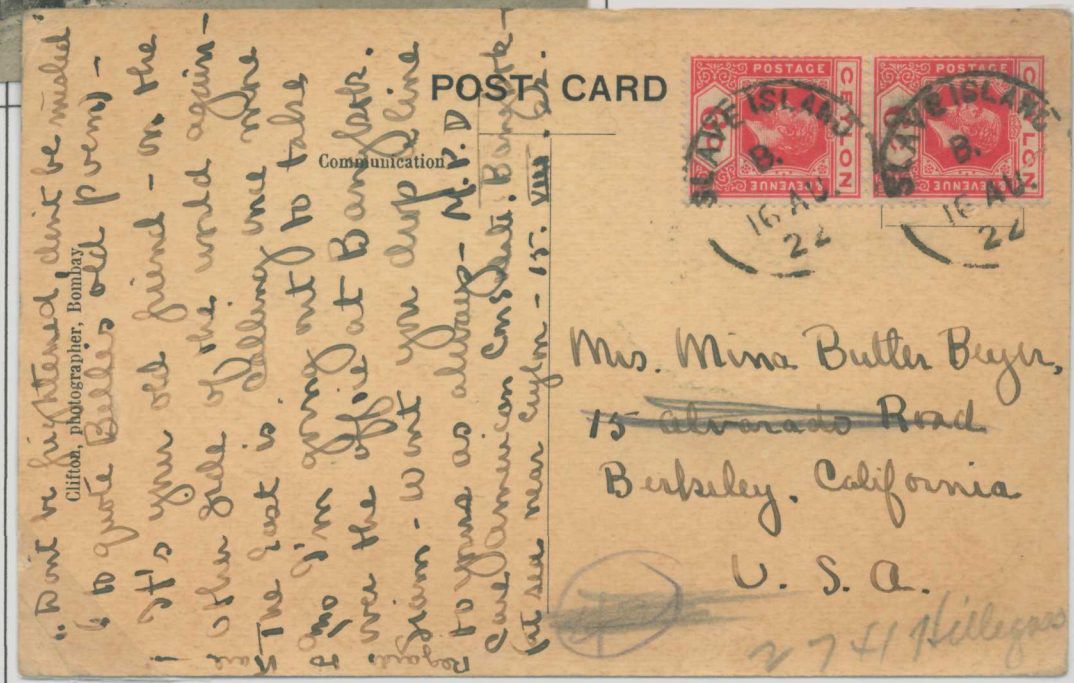 POST CARD
Communication
Clifton, photographer, Bombay
"Dont be frightened, dont be misled
(to quote Belle's old poem) -
It's your old friend - on the
other side of the world again -
The East is calling me more
I'm going out to take
over the office at Bangkok.
Siam - wont you drop a line
to yours as always - M.P.D
Care American Consulate. Bangkok -
at sea near Ceylon - 15. VIII
Regards to
POSTAGE
CEYLON
REVENUE
SLAVE ISLAND
B.
16 AU.
22
POSTAGE
CEYLON
REVENUE
SLAVE ISLAND
B.
16 AU.
22
Mrs. Mina Butler Beyer,
15 Alvarado Road
Berkeley, California
U. S. A.
2741 Hillegass